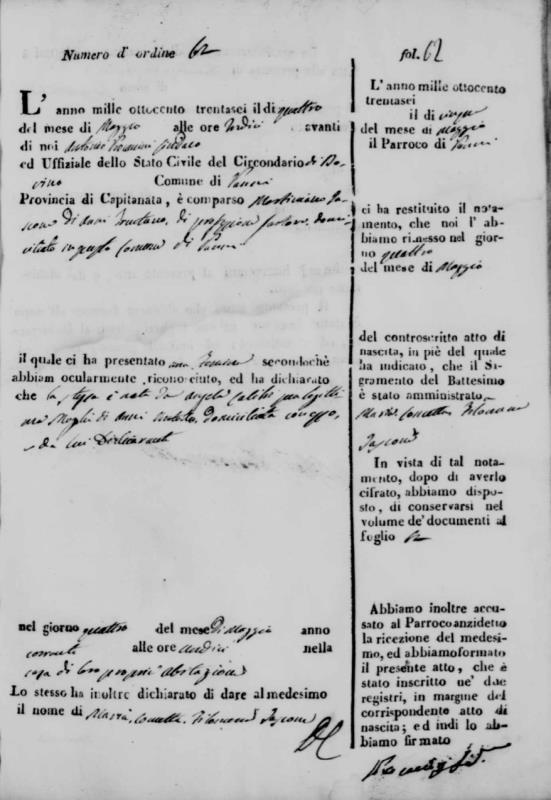 Numero d'ordine 62
L'anno mille ottocento trentasei il di quattro
del mese di Maggio alle ore avanti
di noi Antonio Sindaco
ed Uffiziale dello Stato Civile del Circondario di Bo-
vino Comune di Panni
Provincia di Capitanata, è comparso
di anni di professione domi-
ciliato in questo Comune di Panni
il quale ci ha presentato una secondochè
abbiam ocularmente riconosciuto, ed ha dichiarato
che la stessa è nata da Angela
sua Moglie di anni domiciliata
da lui Dichiarante
nel giorno quattro del mese di Maggio anno
corrente alle ore nella
casa di loro propria abitazione
Lo stesso ha inoltre dichiarato di dare al medesimo
il nome di Maria Concetta Filomena
fol. 62
L'anno mille ottocento
trentasei
il di cinque
del mese di Maggio
il Parroco di Panni
ci ha restituito il nota-
mento, che noi l'ab-
biamo rimesso nel gior-
no quattro
del mese di Maggio
del controscritto atto di
nascita, in piè del quale
ha indicato, che il Sa-
gramento del Battesimo
è stato amministrato a
Maria Concetta Filomena
In vista di tal nota-
mento, dopo di averlo
cifrato, abbiamo dispo-
sto, di conservarsi nel
volume de' documenti al
foglio 62
Abbiamo inoltre accu-
sato al Parroco anzidetto
la ricezione del medesi-
mo, ed abbiamo formato
il presente atto, che è
stato inscritto ne' due
registri, in margine del
corrispondente atto di
nascita; ed indi lo ab-
biamo firmato